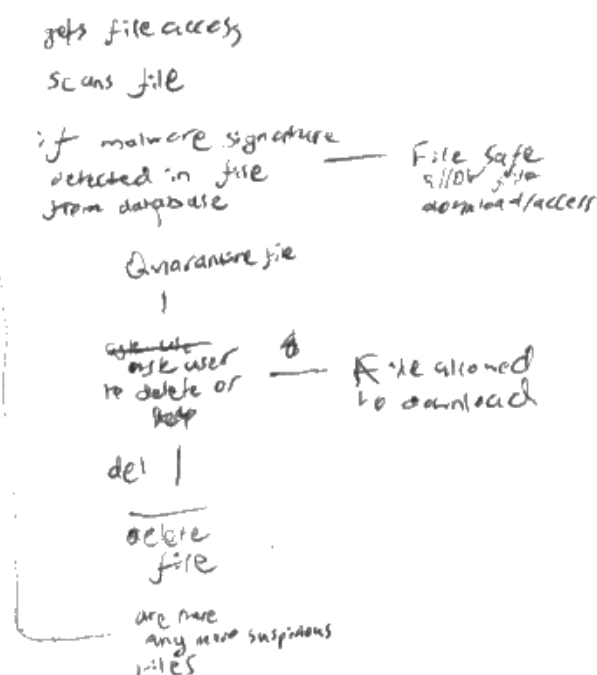 gets file access
scans file
if malware signature
detected in file
from database
File safe
allow file
download/access
Quarantine file
ask user
to delete or
keep
File allowed
to download
del
delete
file
are there
any more suspicious
files